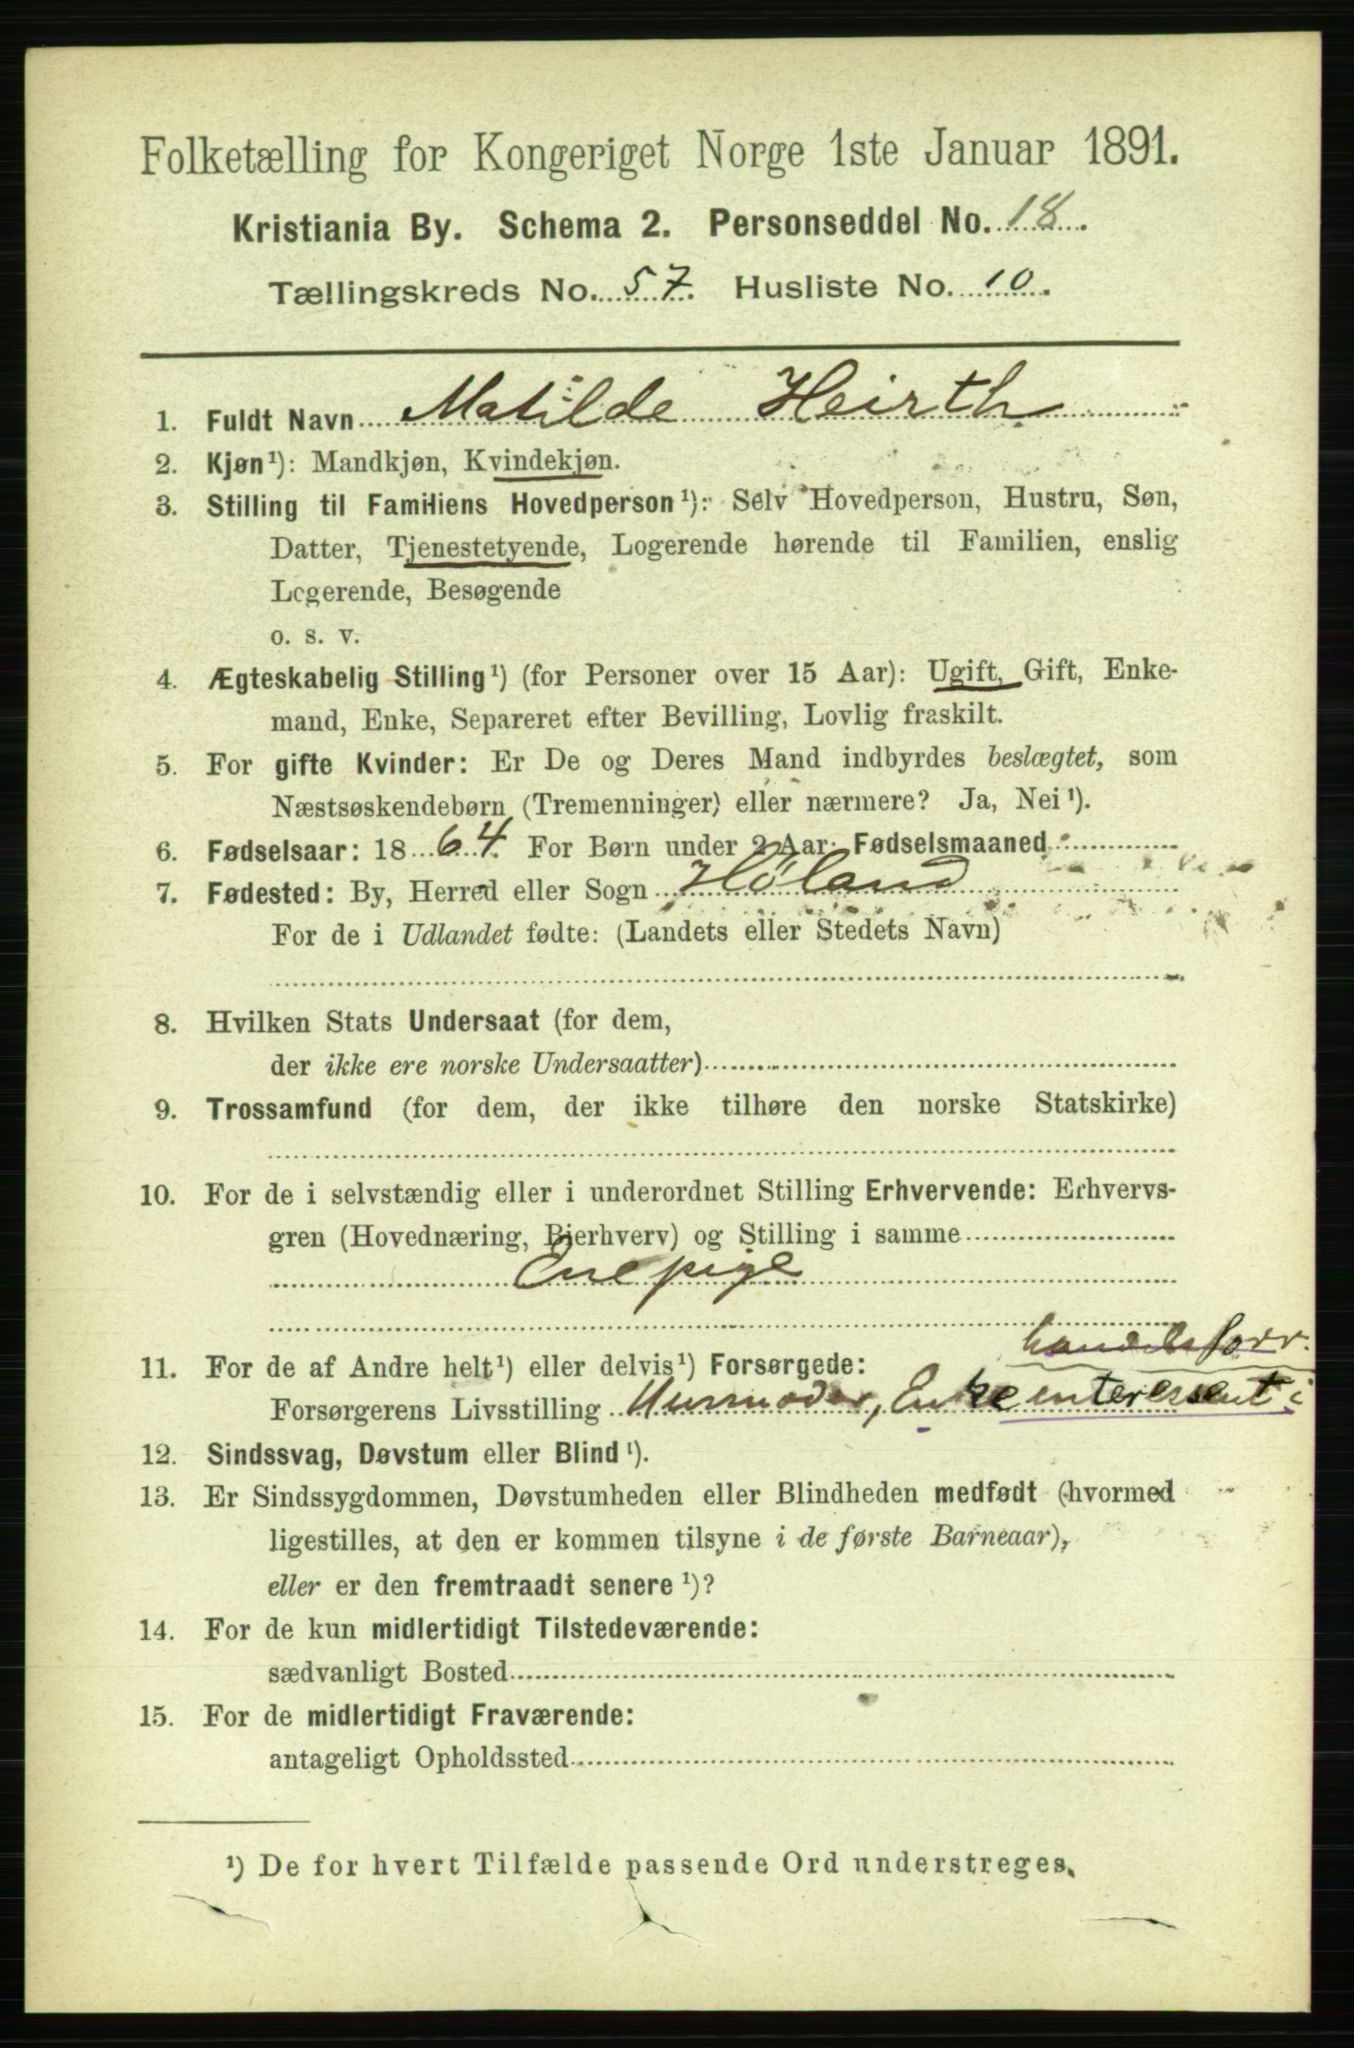 Folketælling for Kongeriget Norge 1ste Januar 1891.
Kristiania By. Schema 2. Personseddel No. 18.
Tællingskreds No. 57. Husliste No. 10.
1. Fuldt Navn Matilde Heirth
2. Kjøn¹): Mandkjøn, Kvindekjøn.
3. Stilling til Familiens Hovedperson¹): Selv Hovedperson, Hustru, Søn,
Datter, Tjenestetyende, Logerende hørende til Familien, enslig
Logerende, Besøgende
o. s. v.
4. Ægteskabelig Stilling¹) (for Personer over 15 Aar): Ugift, Gift, Enke-
mand, Enke, Separeret efter Bevilling, Lovlig fraskilt.
5. For gifte Kvinder: Er De og Deres Mand indbyrdes beslægtet, som
Næstsøskendebørn (Tremenninger) eller nærmere? Ja, Nei¹).
6. Fødselsaar: 1864. For Børn under 2 Aar: Fødselsmaaned
7. Fødested: By, Herred eller Sogn Høland
For de i Udlandet fødte: (Landets eller Stedets Navn)
8. Hvilken Stats Undersaat (for dem,
der ikke ere norske Undersaatter)
9. Trossamfund (for dem, der ikke tilhøre den norske Statskirke)
10. For de i selvstændig eller i underordnet Stilling Erhvervende: Erhvervs-
gren (Hovednæring, Bierhverv) og Stilling i samme
Enepige
handelsforr.
11. For de af Andre helt¹) eller delvis¹) Forsørgede:
Forsørgerens Livsstilling Husmoder, Enke interessent i
12. Sindssvag, Døvstum eller Blind¹).
13. Er Sindssygdommen, Døvstumheden eller Blindheden medfødt (hvormed
ligestilles, at den er kommen tilsyne i de første Barneaar),
eller er den fremtraadt senere¹)?
14. For de kun midlertidigt Tilstedeværende:
sædvanligt Bosted
15. For de midlertidigt Fraværende:
antageligt Opholdssted
¹) De for hvert Tilfælde passende Ord understreges.